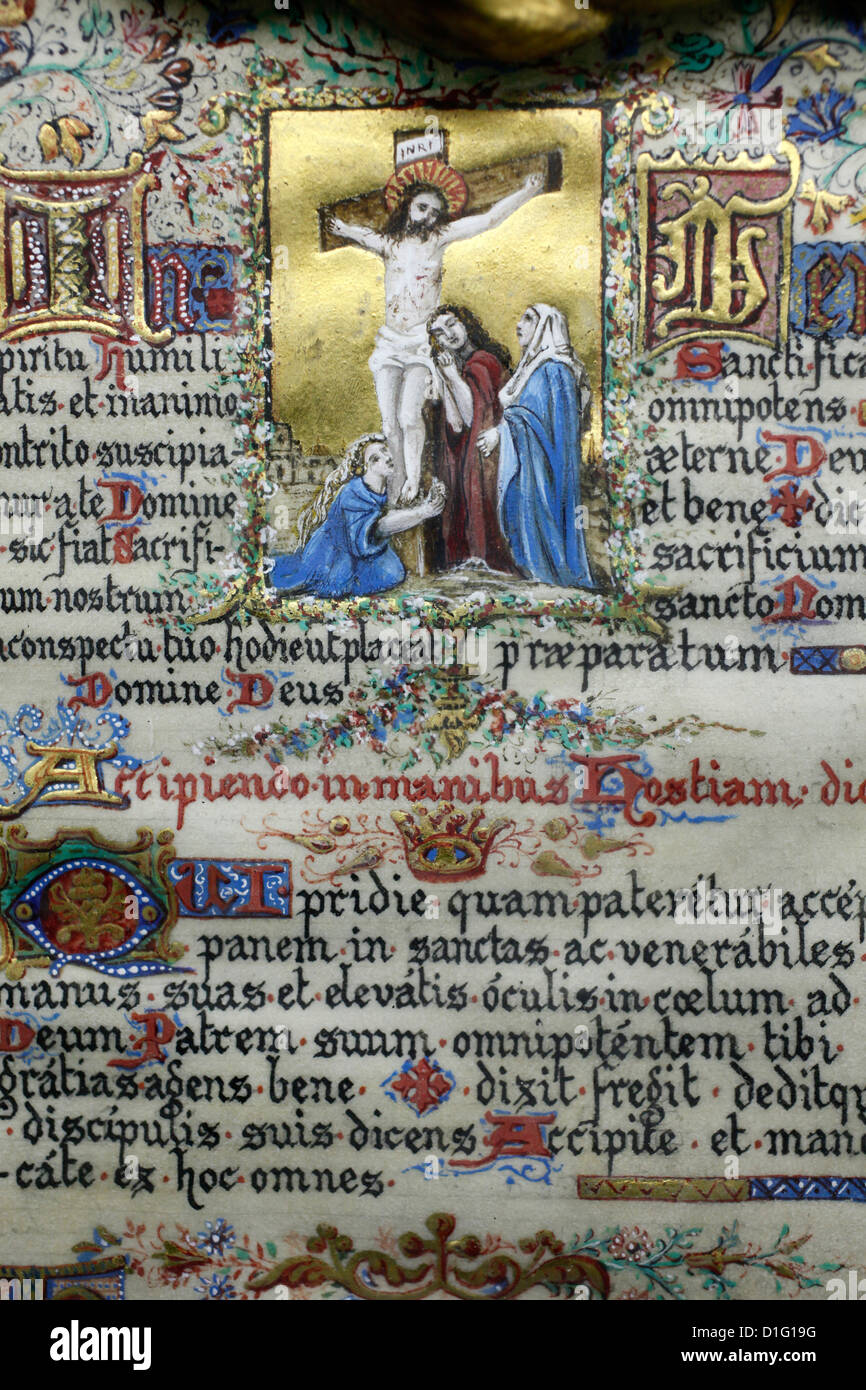 INRI
In
spiritu humili
atis et in animo
contrito suscipia
mur a te Domine
sic fiat Sacrifi-
cium nostrum
in conspectu tuo hodie ut placeat
Domine Deus
Ven
Sanctifica
omnipotens
æterne Deu
et bene ✠ dic
sacrificium
sancto Nom
præparatum
Accipiendo in manibus Hostiam dic
QUI pridie quam pateritur accép
panem in sanctas ac venerábiles
manus suas et elevátis óculis in cœlum ad
Deum Patrem suum omnipoténtem tibi
grátias agens bene ✠ dixit fregit deditqu
discípulis suis dicens Accípite et mandu
-cáte ex hoc omnes.
alamy
Image ID: D1G19G
www.alamy.com